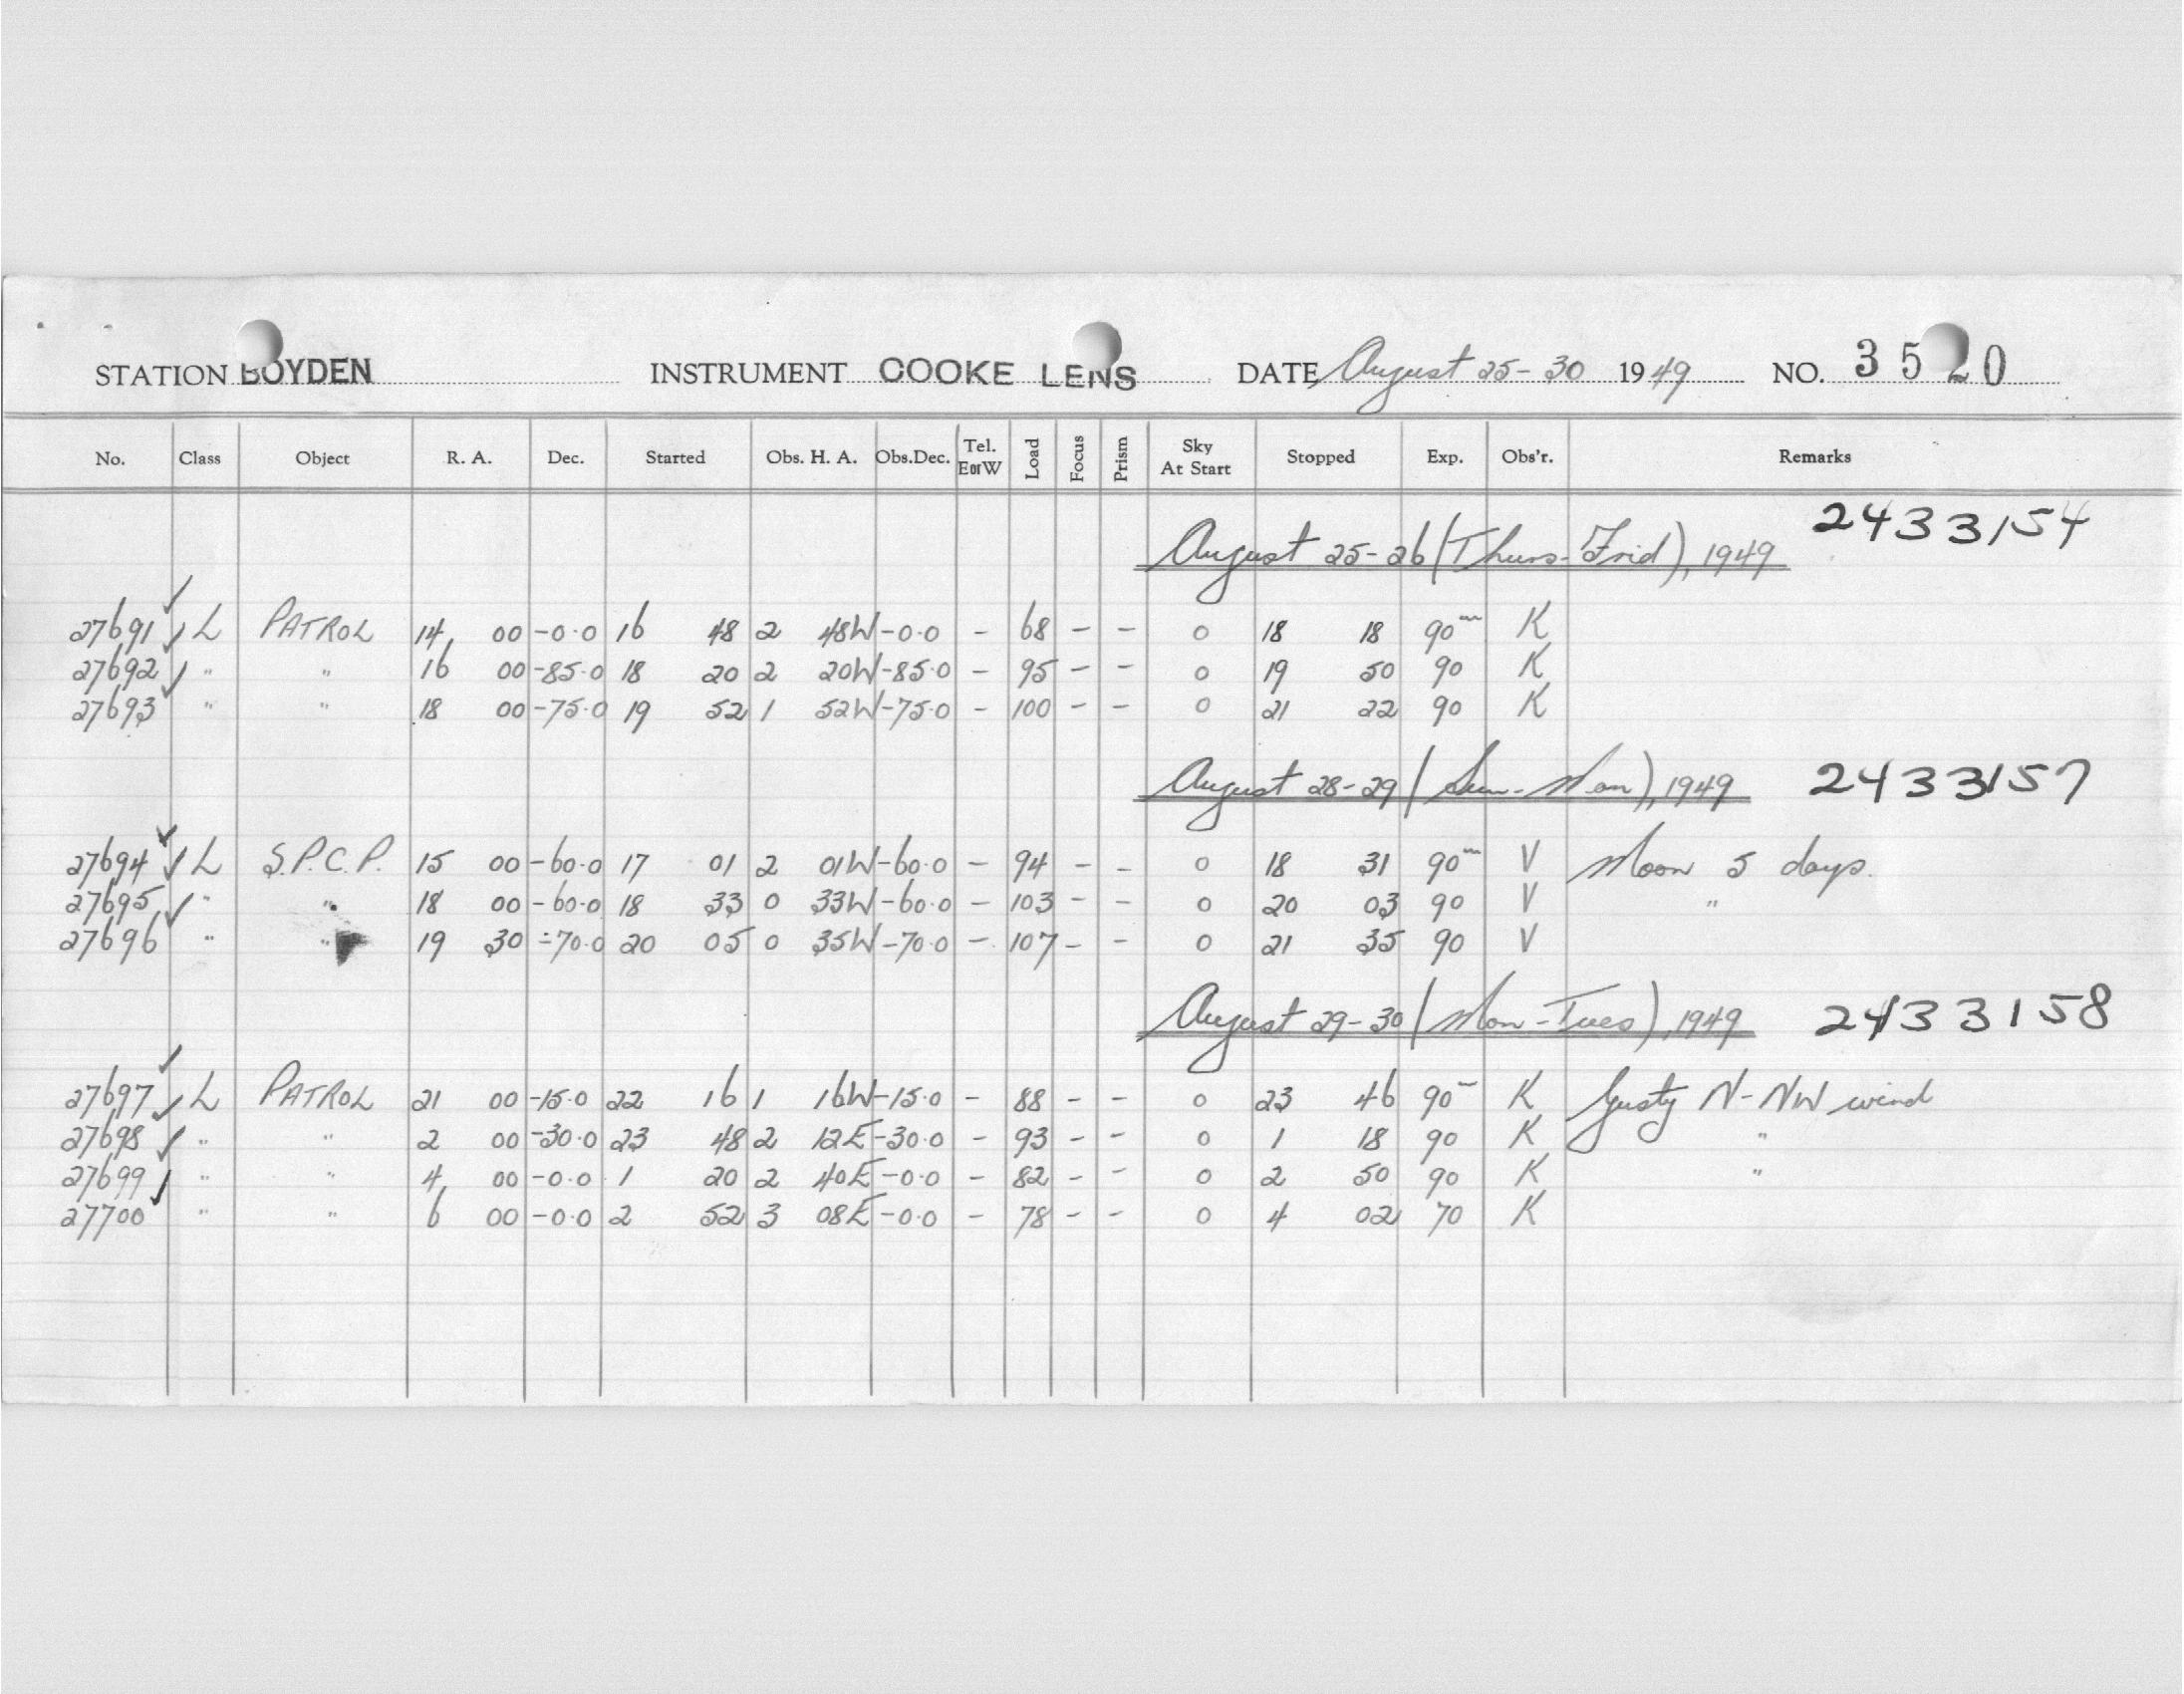 STATION BOYDEN INSTRUMENT COOKE LENS DATE August 25-30 1949 NO. 3520
No. Class Object R. A. Dec. Started Obs. H. A. Obs.Dec. Tel. E or W Load Focus Prism Sky At Start Stopped Exp. Obs'r. Remarks
August 25-26 (Thurs-Frid), 1949 2433154
27691 ✓ L PATROL 14 00 -0.0 16 48 2 48W -0.0 - 68 - - 0 18 18 90m K
27692 ✓ " " 16 00 -85.0 18 20 2 20W -85.0 - 95 - - 0 19 50 90 K
27693 ✓ " " 18 00 -75.0 19 52 1 52W -75.0 - 100 - - 0 21 22 90 K
August 28-29 (Sun-Mon), 1949 2433157
27694 ✓ L S.P.C.P. 15 00 -60.0 17 01 2 01W -60.0 - 94 - - 0 18 31 90m V Moon 5 days.
27695 ✓ " " 18 00 -60.0 18 33 0 33W -60.0 - 103 - - 0 20 03 90 V "
27696 ✓ " " 19 30 -70.0 20 05 0 35W -70.0 - 107 - - 0 21 35 90 V
August 29-30 (Mon-Tues), 1949 2433158
27697 ✓ L PATROL 21 00 -15.0 22 16 1 16W -15.0 - 88 - - 0 23 46 90m K Gusty N-NW wind
27698 ✓ " " 2 00 -30.0 23 48 2 12E -30.0 - 93 - - 0 1 18 90 K "
27699 ✓ " " 4 00 -0.0 1 20 2 40E -0.0 - 82 - - 0 2 50 90 K "
27700 ✓ " " 6 00 -0.0 2 52 3 08E -0.0 - 78 - - 0 4 02 70 K